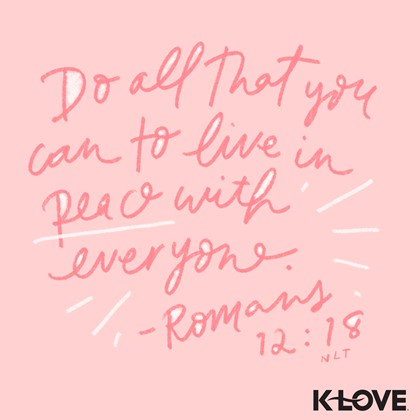 Do all that you
can to live in
peace with
everyone.
-Romans
12:18
NLT
K-LOVE